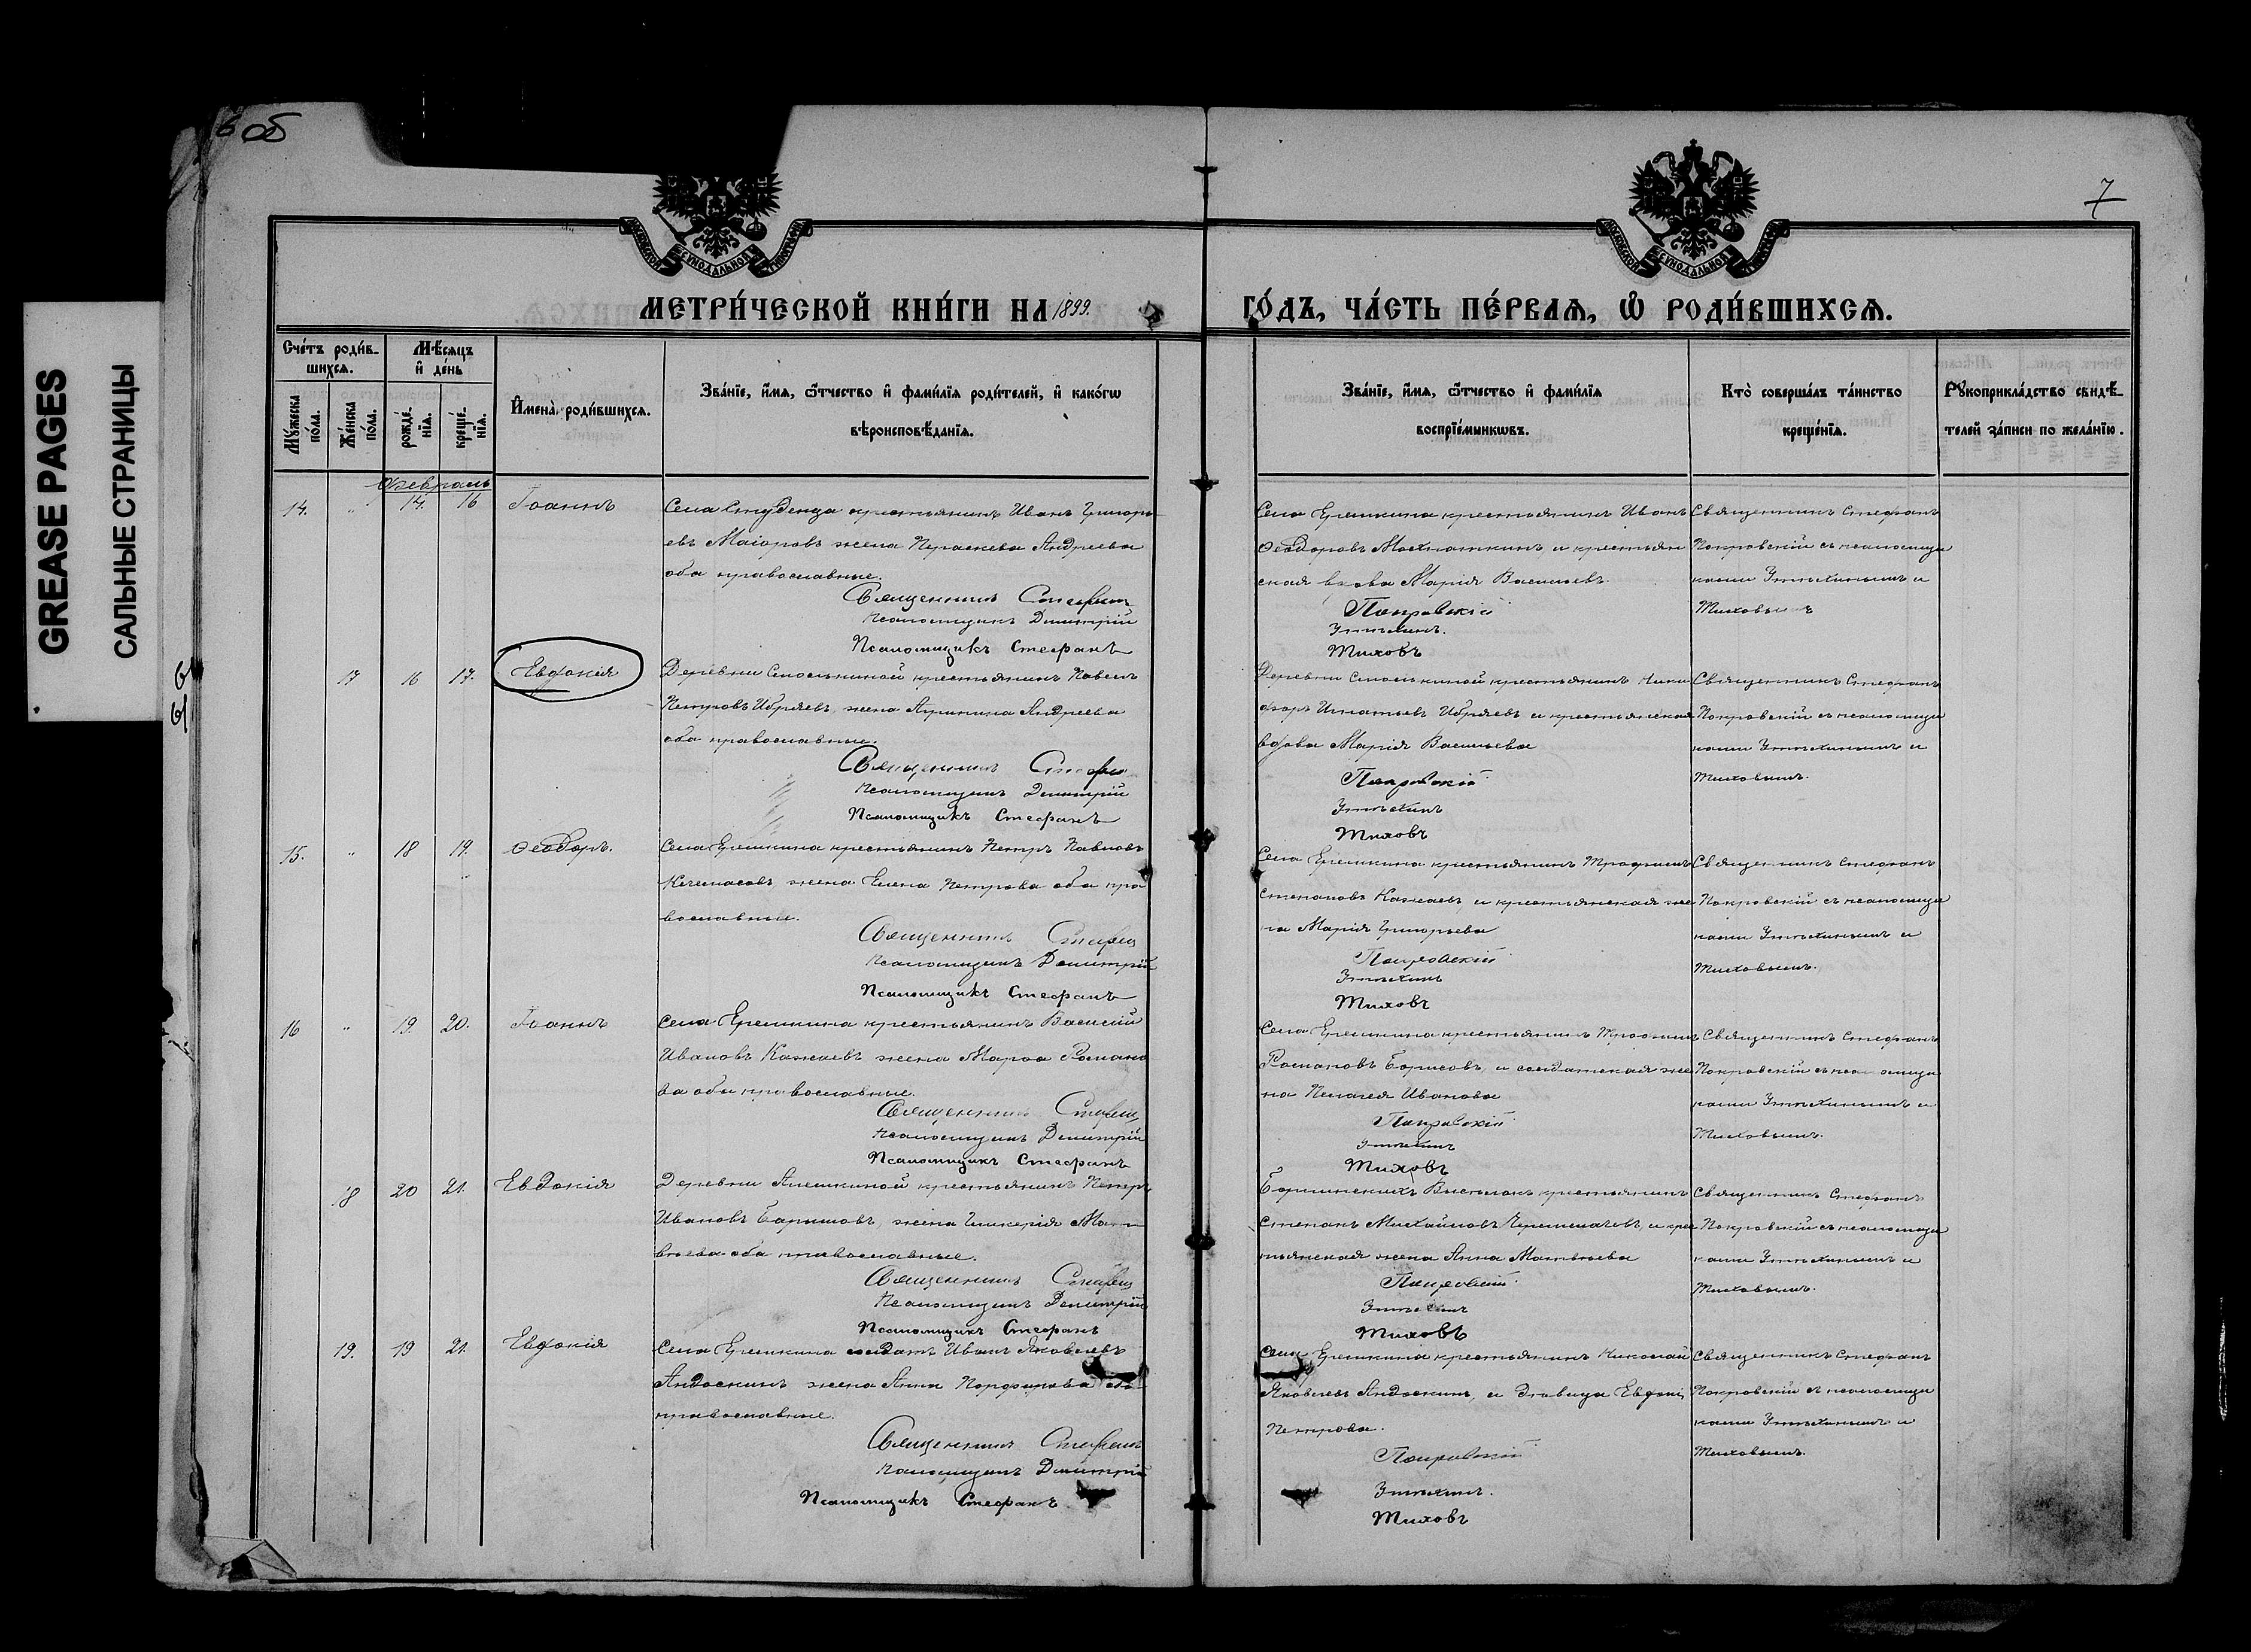 об
7
GREASE PAGES
САЛЬНЫЕ СТРАНИЦЫ
МЕТРИ́ЧЕСКОЙ КНИ́ГИ НА 1899.
ГО́ДЪ, ЧА́СТЬ ПЕ́РВАѦ, Ѽ РОДИ́ВШИХСѦ.
Сче́тъ роди́в-
шихсѧ.
Мѣ́сѧцъ
и҆ де́нь
Мꙋ́жеска
по́ла.
Же́нска
по́ла.
рожде́-
нїѧ.
креще́-
нїѧ.
И҆мена̀ роди́вшихсѧ.
Зва́нїе, и҆́мѧ, ѻ҆́тчество и҆ фами́лїѧ роди́телей, и҆ како́гѡ
вѣроисповѣ́данїѧ.
Зва́нїе, и҆́мѧ, ѻ҆́тчество и҆ фами́лїѧ
воспрїе́мникѡвъ.
Кто̀ соверша́лъ та́инство
креще́нїѧ.
Рꙋкоприкла́дство свидѣ́-
телей за́писи по жела́нїю.
Февраль
14. " 14. 16 Іоаннъ
Села Студенца крестьянинъ Иванъ Григорь
евъ Маіоровъ жена Параскева Андреева
оба православные.
Священникъ Стефанъ
Псаломщикъ Димитрій
Псаломщикъ Стефанъ
Села Ерешкина крестьянинъ Иванъ
Ѳеодоровъ и крестьян
ская вдова Марія Васильев
Покровскій
Утѣхинъ.
Тиховъ
Священникъ Стефанъ
Покровскій съ псаломщи
ками Утѣхинымъ и
Тиховымъ
17 16 17. Евдокія
Деревни крестьянинъ Павелъ
Петровъ Ибряевъ жена Агрипина Андреева
оба православные.
Священникъ Стефан
Псаломщикъ Димитрій
Псаломщикъ Стефанъ
Деревни крестьянинъ Ники
форъ Игнатьевъ Ибряевъ и крестьянская
вдова Марія Васильева
Покровскій
Утѣхинъ
Тиховъ
Священникъ Стефанъ
Покровскій съ псаломщи
ками Утѣхинымъ и
Тиховымъ.
15. " 18 19. Ѳеодоръ.
Села Ерешкина крестьянинъ Петръ Павловъ
Кечемасовъ жена Елена Петрова оба пра
вославные.
Священникъ Стефан
Псаломщикъ Димитрій
Псаломщикъ Стефанъ
Села Ерешкина крестьянинъ Трофимъ
Степановъ Кажаевъ, и крестьянская же
на Марія Григорьева
Покровскій
Утѣхинъ
Тиховъ
Священникъ Стефанъ
Покровскій съ псаломщи
ками Утѣхинымъ и
Тиховымъ.
16 " 19. 20. Іоаннъ
Села Ерешкина крестьянинъ Василій
Ивановъ Кажаевъ жена Марѳа Романо
ва оба православные.
Священникъ Стефан
Псаломщикъ Димитрій
Псаломщикъ Стефанъ
Села Ерешкина крестьянинъ Трофимъ
Романовъ Борисовъ, и солдатская же
на Пелагея Иванова
Покровскій
Утѣхинъ
Тиховъ
Священникъ Стефанъ
Покровскій съ псаломщи
ками Утѣхинымъ и
Тиховымъ.
18 20 21. Евдокія
Деревни Алешкиной крестьянинъ Петръ
Ивановъ Баришовъ, жена Гликерія Мат
вѣева оба православные.
Священникъ Стефан
Псаломщикъ Димитрій
Псаломщикъ Стефанъ
крестьянинъ
Степанъ Михайловъ и крес
тьянская жена Анна Матвѣева
Покровскій
Утѣхинъ
Тиховъ
Священникъ Стефанъ
Покровскій съ псаломщи
ками Утѣхинымъ и
Тиховымъ.
19. 19 21. Евдокія
Села Ерешкина солдатъ Иванъ Яковлевъ
Андоскинъ жена Анна Порфирова оба
православные.
Священникъ Стефанъ
Псаломщикъ Димитрій
Псаломщикъ Стефанъ
Села Ерешкина крестьянинъ Николай
Яковлевъ Андоскинъ, и дѣвица Евдокі
Петрова.
Покровскій
Утѣхинъ.
Тиховъ
Священникъ Стефанъ
Покровскій съ псаломщи
ками Утѣхинымъ и
Тиховымъ.